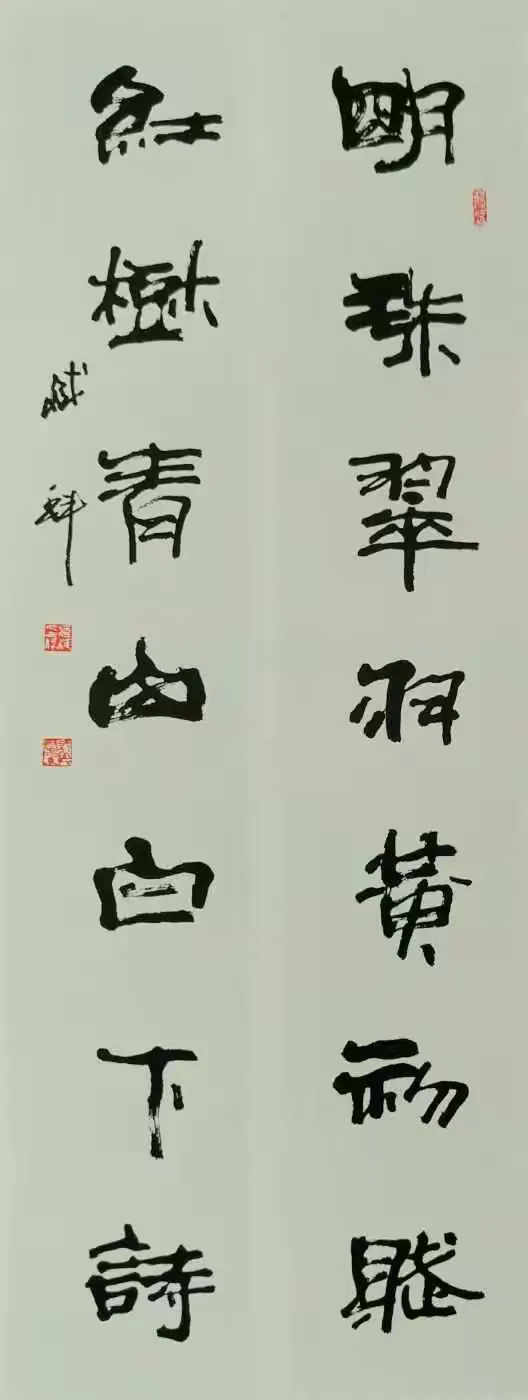 明珠翠羽黃初賦
紅樹青山白下詩